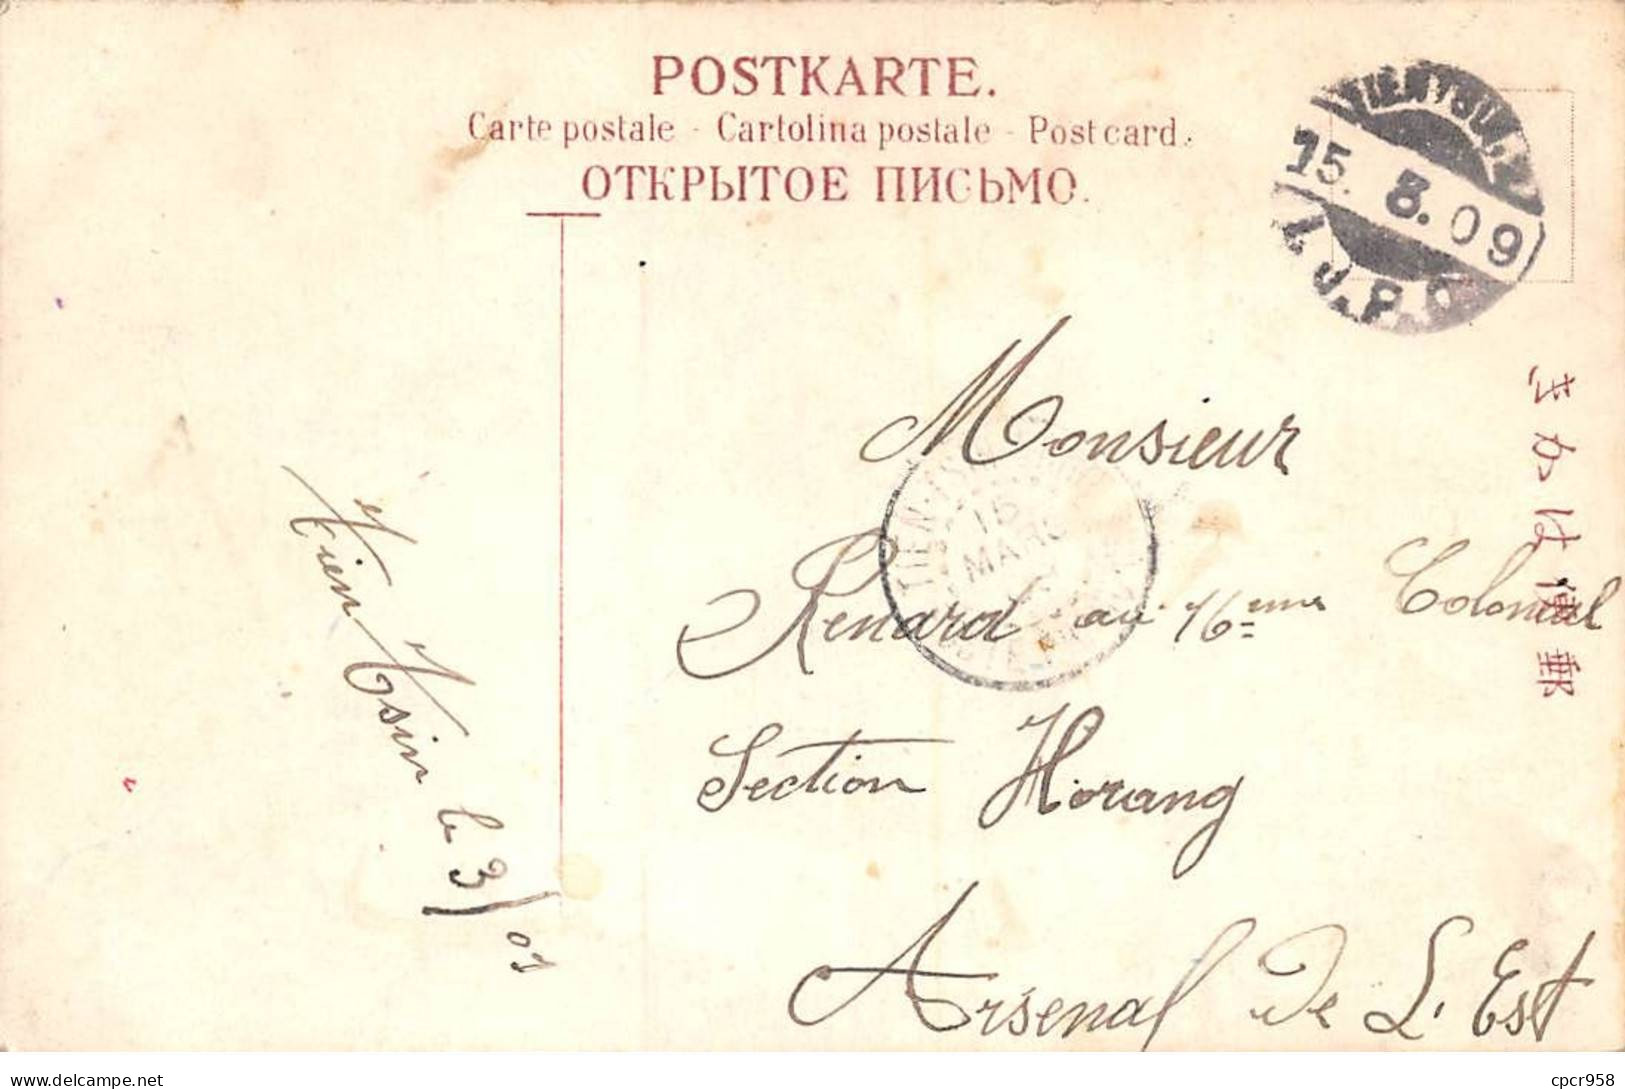 POSTKARTE.
Carte postale - Cartolina postale - Post card.
ОТКРЫТОЕ ПИСЬМО.
TIENTSIN
15. 3. 09
I.J.P.O
きかは便郵
Monsieur
TIEN-
15
MARS
Renard au 16ème Colonial
Section Horang
Arsenal De L'Est
Tien Tsin le 3/09
cpcr958